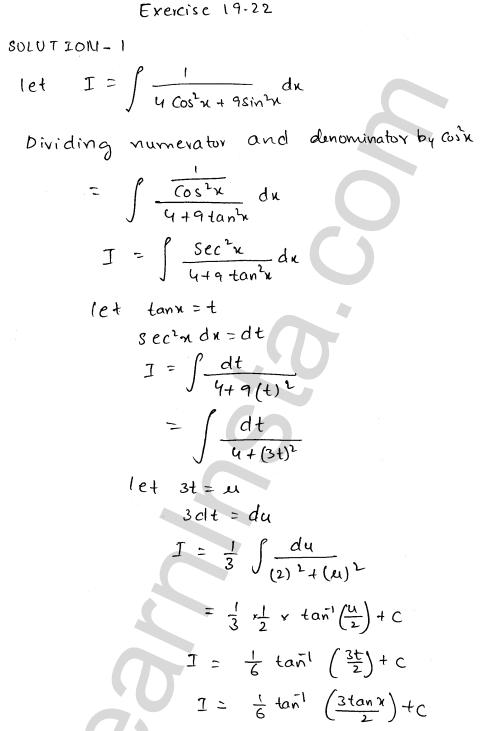 Exercise 19.22
SOLUTION-1
let I = ∫ 1/(4 Cos²x + 9sin²x) dx
Dividing numerator and denominator by Cos²x
= ∫ (1/Cos²x)/(4+9tan²x) dx
I = ∫ Sec²x/(4+9 tan²x) dx
let tanx = t
sec²x dx = dt
I = ∫ dt/(4+9(t)²)
= ∫ dt/(4+(3t)²)
let 3t = u
3dt = du
I = 1/3 ∫ du/((2)²+(u)²)
= 1/3 × 1/2 × tan⁻¹(u/2) + C
I = 1/6 tan⁻¹ (3t/2) + C
I = 1/6 tan⁻¹ (3tanx/2) + C
earnInsta.com